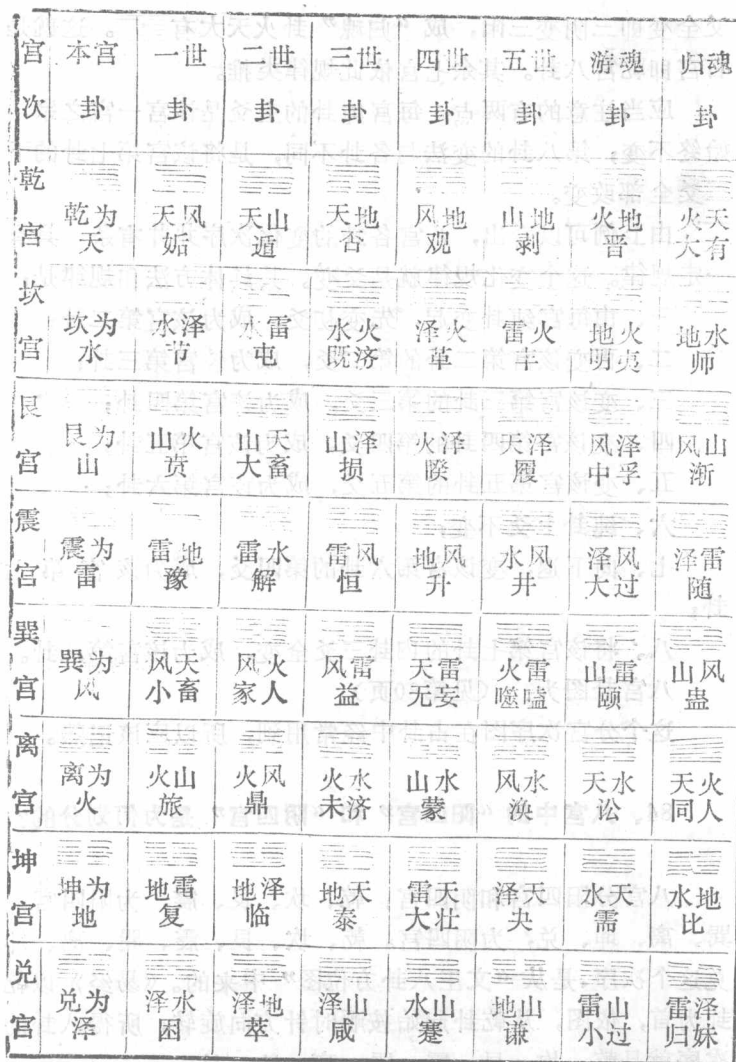 宫次 本宫卦 一世卦 二世卦 三世卦 四世卦 五世卦 游魂卦 归魂卦
乾宫 乾为天 天风姤 天山遁 天地否 风地观 山地剥 火地晋 火天大有
坎宫 坎为水 水泽节 水雷屯 水火既济 泽火革 雷火丰 地火明夷 地水师
艮宫 艮为山 山火贲 山天大畜 山泽损 火泽睽 天泽履 风泽中孚 风山渐
震宫 震为雷 雷地豫 雷水解 雷风恒 地风升 水风井 泽风大过 泽雷随
巽宫 巽为风 风天小畜 风火家人 风雷益 天雷无妄 火雷噬嗑 山雷颐 山风蛊
离宫 离为火 火山旅 火风鼎 火水未济 山水蒙 风水涣 天水讼 天火同人
坤宫 坤为地 地雷复 地泽临 地天泰 雷天大壮 泽天夬 水天需 水地比
兑宫 兑为泽 泽水困 泽地萃 泽山咸 水山蹇 地山谦 雷山小过 雷泽归妹